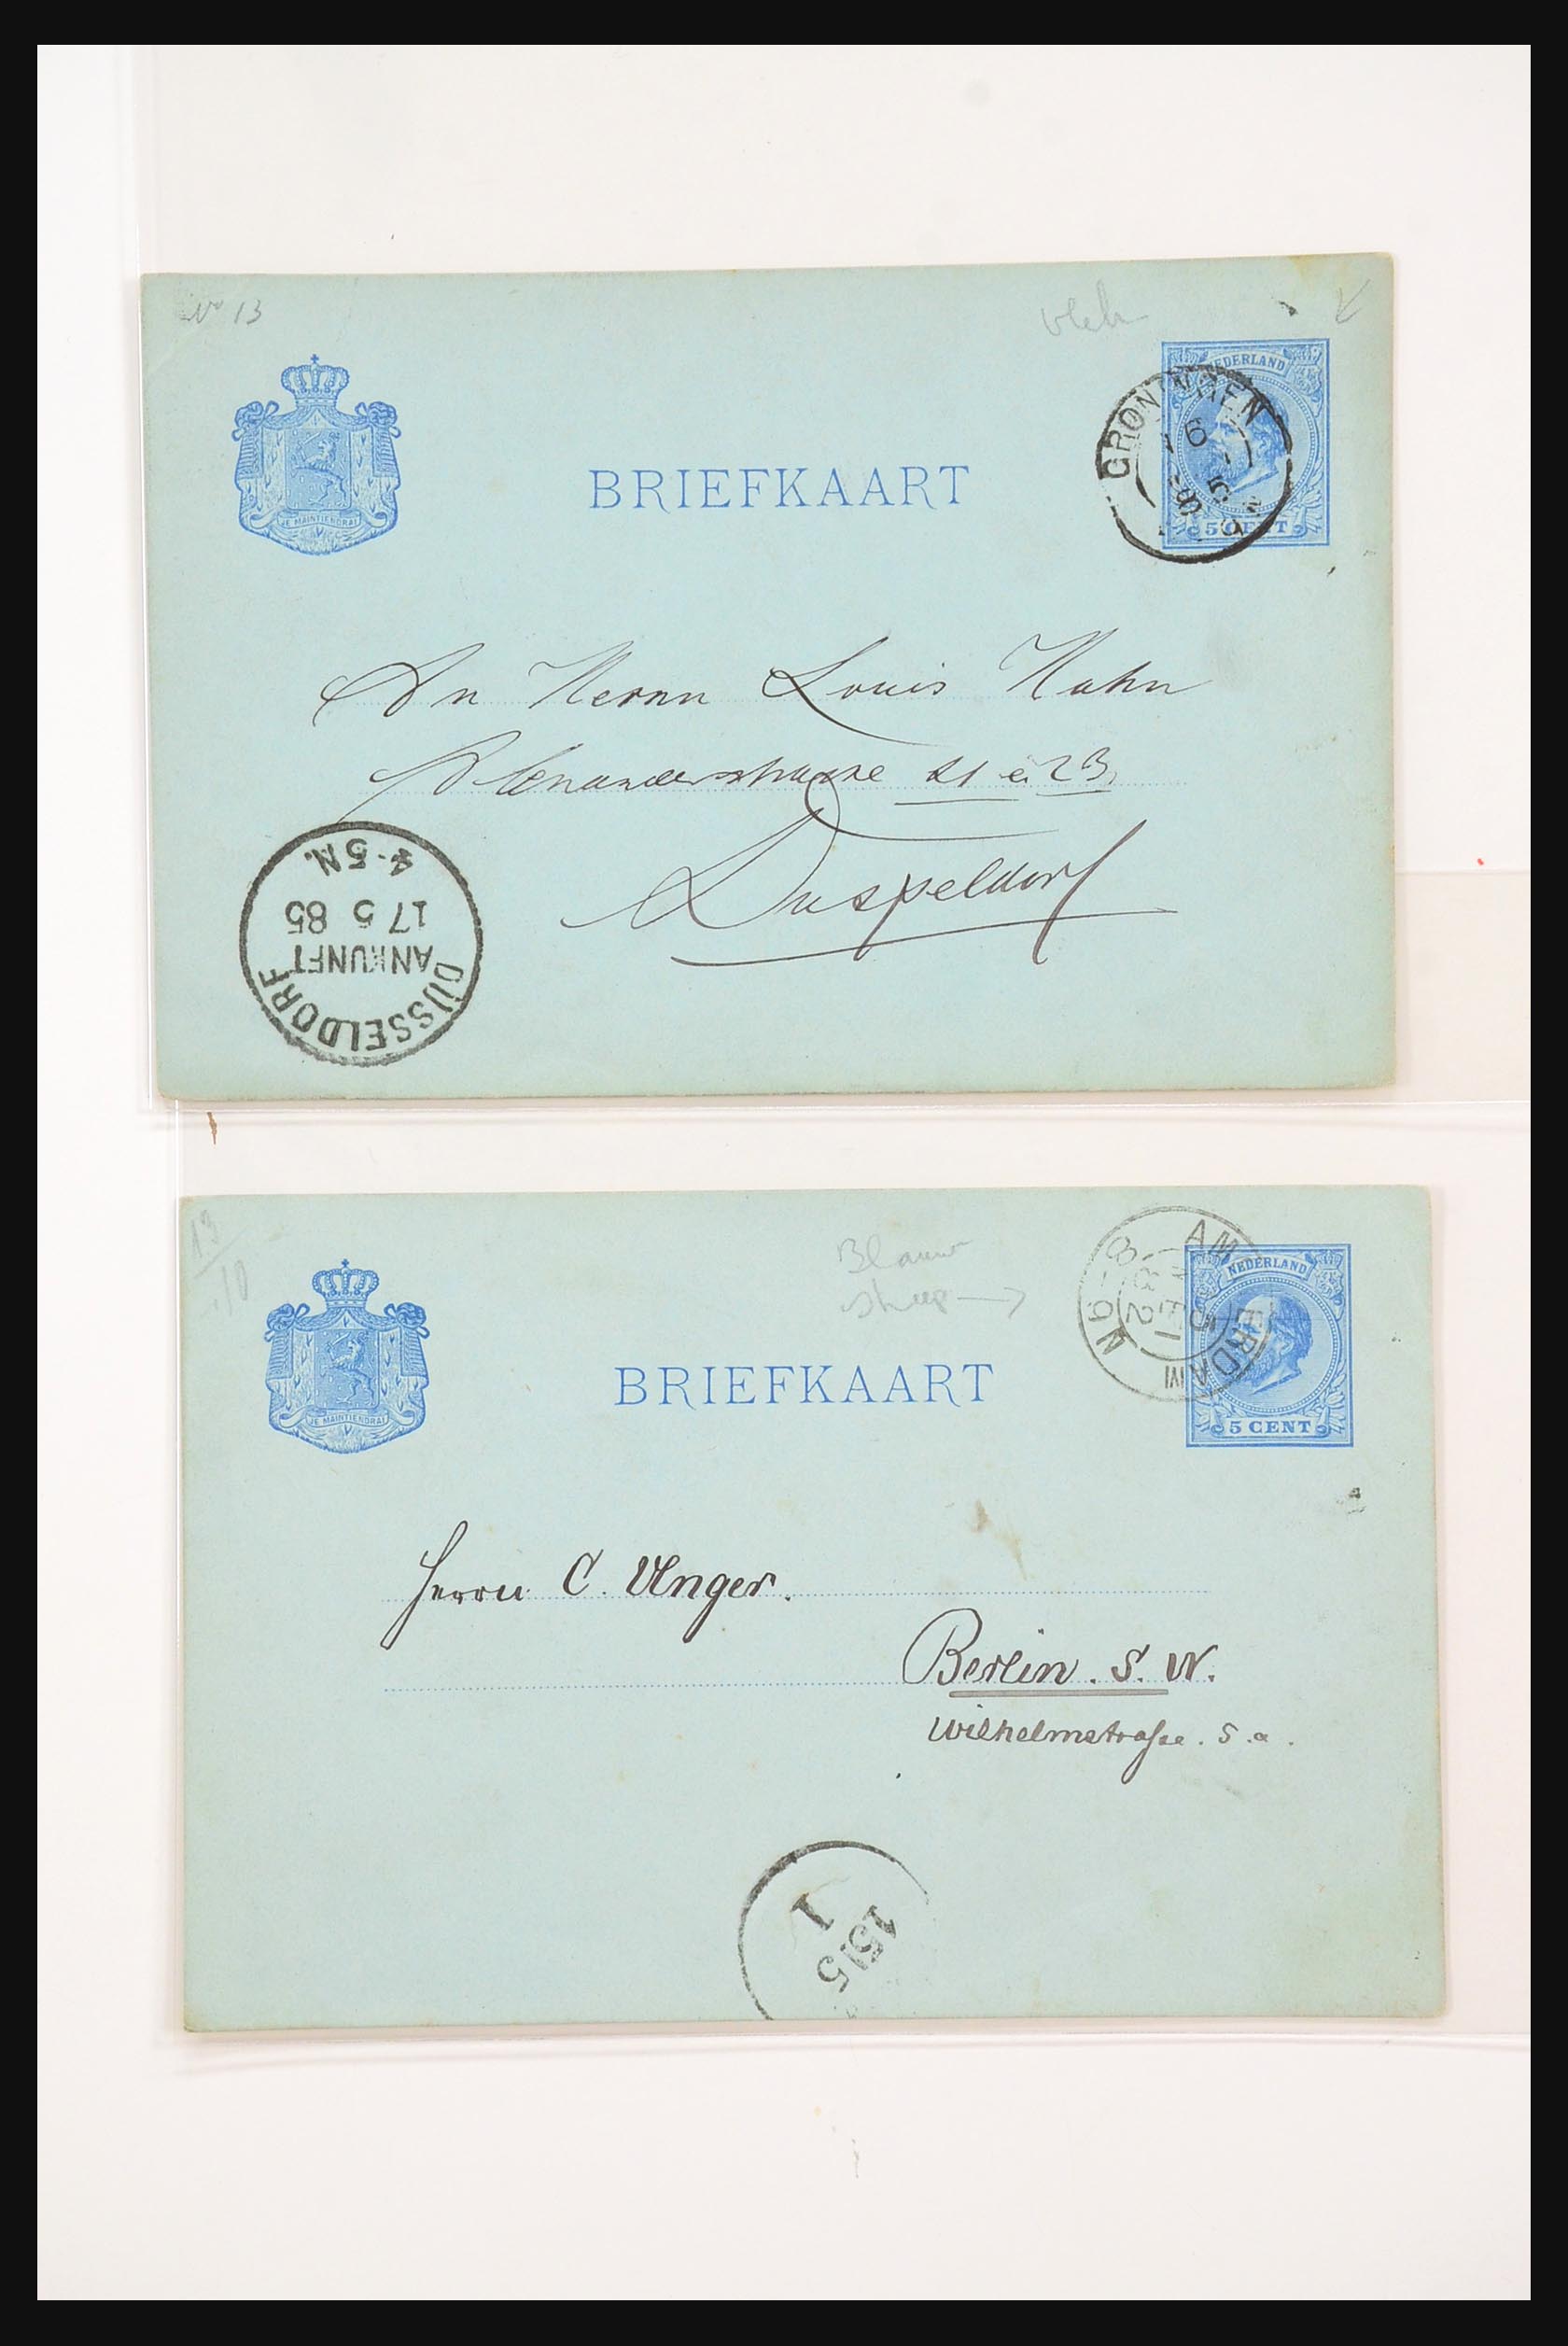 No 13
vlek
NEDERLAND
JE MAINTIENDRAI
BRIEFKAART
GRONINGEN
16
5
5 CENT
An Herrn Louis Hahn
Alexanderstrasse 21 & 23,
Dusseldorf
DÜSSELDORF
ANKUNFT
17 5 85
4-5 N.
13
10
Blauw
streep →
NEDERLAND
AMSTERDAM
JE MAINTIENDRAI
BRIEFKAART
5 CENT
Herrn C. Unger.
Berlin. S. W.
Wilhelmstrasse. 5.a.
1
15 5